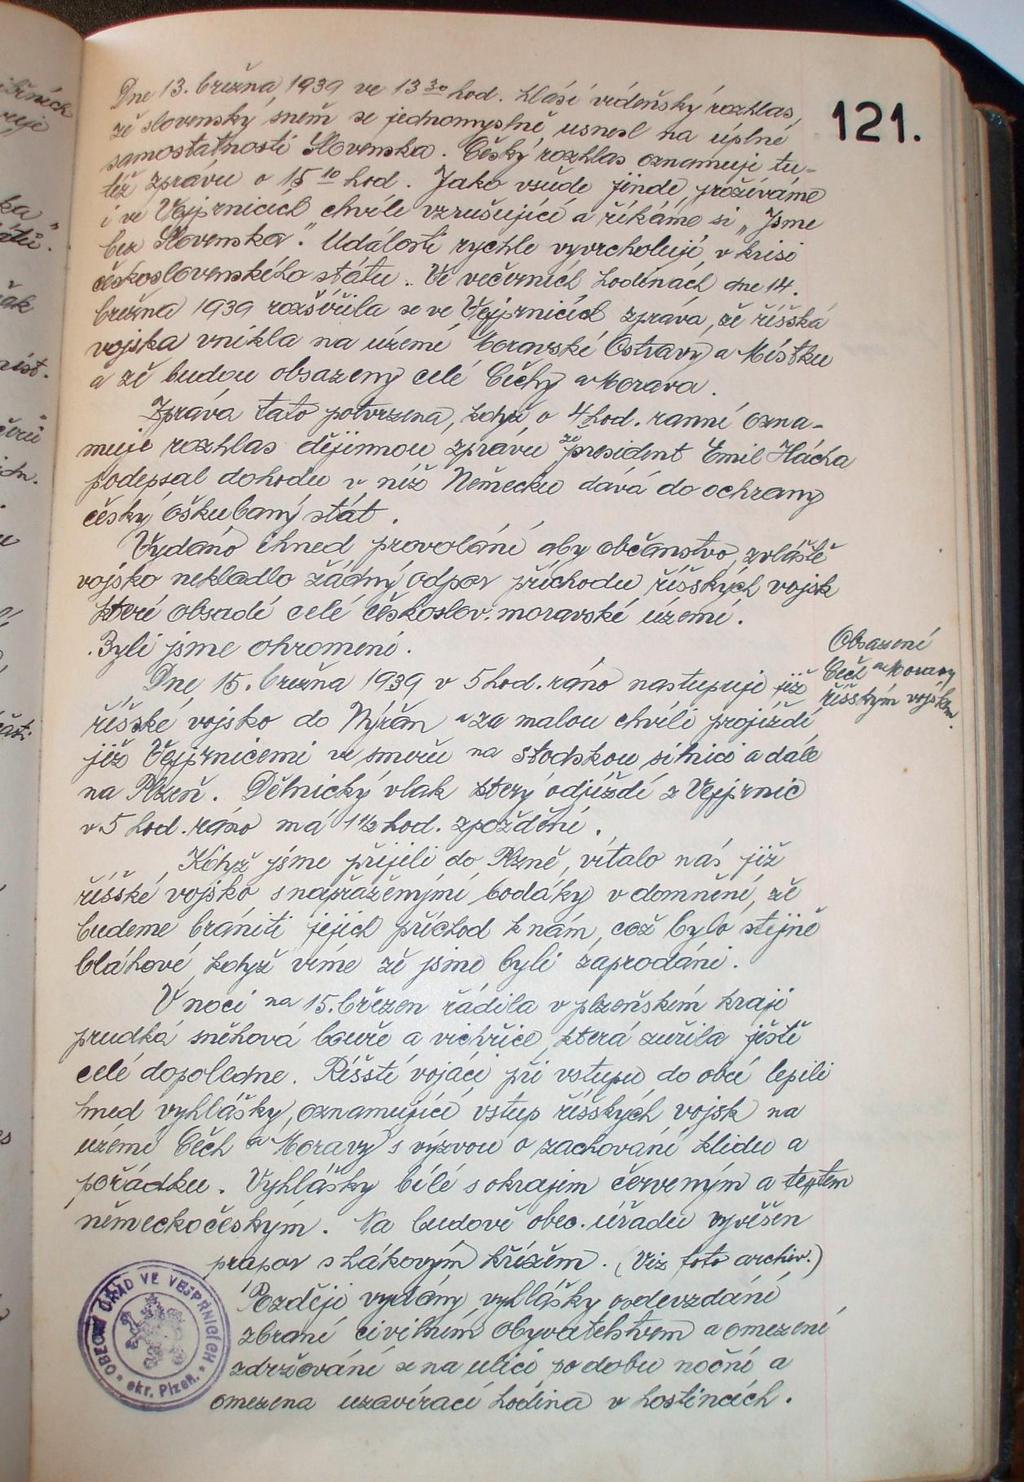 121.
Dne 13. března 1939 ve 13 30 hod. hlásí vídeňský rozhlas,
že slovenský sněm se jednomyslně usnesl na úplné
samostatnosti Slovenska. Český rozhlas oznamuje tu-
též zprávu o 15 10 hod. Jako všude jinde prožíváme
i ve Vejprnicích chvíle vzrušující a říkáme si „Jsme
bez Slovenska“. Události rychle vyvrcholují v krisi
československého státu. Ve večerních hodinách dne 14.
března 1939 rozšířila se ve Vejprnicích zpráva, že říšská
vojska vnikla na území Moravské Ostravy a Místku
a že budou obsazeny celé Čechy a Morava.
Zpráva tato potvrzena, když o 4 hod. ranní ozna-
muje rozhlas dějinnou zprávu že president Emil Hácha
podepsal dohodu v níž Německu dává do ochrany
český oškubaný stát.
Vydáno ihned provolání aby občanstvo, zvláště
vojsko nekladlo žádný odpor příchodu říšských vojsk
které obsadí celé českoslov. moravské území.
Byli jsme ohromeni.
Obsazení
Čech a Moravy
říšským vojskem.
Dne 15. března 1939 v 5 hod. ráno nastupuje již
říšské vojsko do Nýřan a za malou chvíli projíždí
již Vejprnicemi ve směru na Stodskou silnici a dále
na Plzeň. Dělnický vlak který odjíždí z Vejprnic
v 5 hod. ráno má 1 1/2 hod. zpoždění.
Když jsme přijeli do Plzně, vítalo nás již
říšské vojsko s napřaženými bodáky v domnění, že
budeme brániti jejich příchod k nám, což bylo stejně
bláhové, když víme že jsme byli zaprodáni.
V noci na 15. březen řádila v plzeňském kraji
prudká sněhová bouře a vichřice, která zuřila ještě
celé dopoledne. Říšští vojáci při vstupu do obcí lepili
hned vyhlášky, oznamující vstup říšských vojsk na
území Čech a Moravy s výzvou o zachování klidu a
pořádku. Vyhlášky bílé s okrajem červeným a textem
německočeským. Na budově obec. úřadu vyvěšen
prapor s hákovým křížem. (Viz foto archiv.)
Později vydány vyhlášky o odevzdání
zbraní civilním obyvatelstvem a omezení
zdržování se na ulici po dobu noční a
omezena uzavírací hodina v hostincích.
OBECNÍ ÚŘAD VE VEJPRNICÍCH
okr. Plzeň.